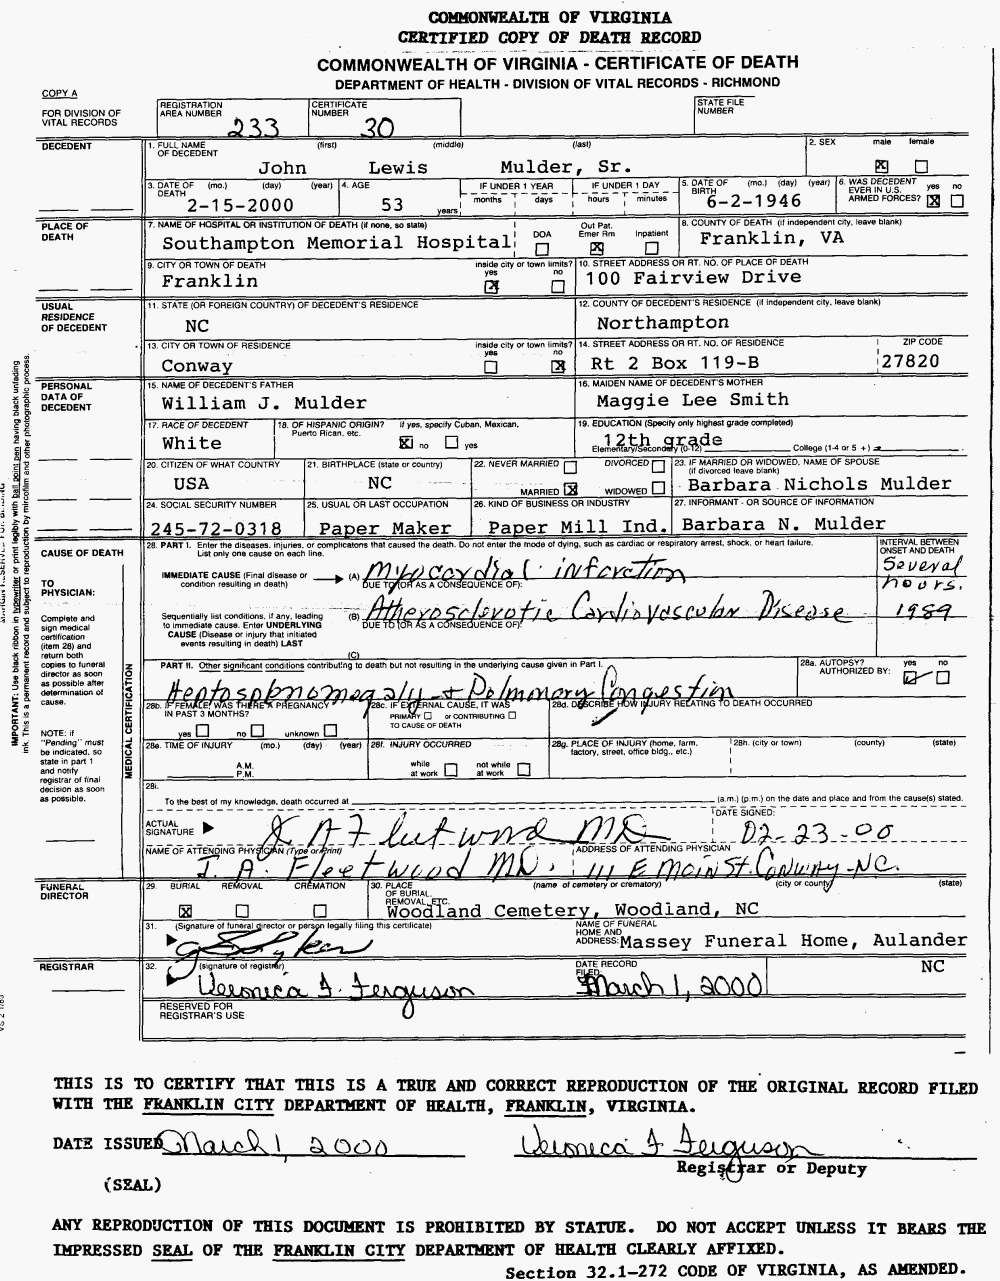 COMMONWEALTH OF VIRGINIA
CERTIFIED COPY OF DEATH RECORD
COMMONWEALTH OF VIRGINIA - CERTIFICATE OF DEATH
DEPARTMENT OF HEALTH - DIVISION OF VITAL RECORDS - RICHMOND
COPY A
FOR DIVISION OF VITAL RECORDS
REGISTRATION AREA NUMBER 233
CERTIFICATE NUMBER 30
STATE FILE NUMBER
DECEDENT
1. FULL NAME OF DECEDENT (first) (middle) (last)
John Lewis Mulder, Sr.
2. SEX male female
3. DATE OF DEATH (mo.) (day) (year)
2-15-2000
4. AGE
53 years
IF UNDER 1 YEAR months days
IF UNDER 1 DAY hours minutes
5. DATE OF BIRTH (mo.) (day) (year)
6-2-1946
6. WAS DECEDENT EVER IN U.S. ARMED FORCES? yes no
PLACE OF DEATH
7. NAME OF HOSPITAL OR INSTITUTION OF DEATH (if none, so state)
Southampton Memorial Hospital
DOA Out Pat. Emer Rm Inpatient
8. COUNTY OF DEATH (if independent city, leave blank)
Franklin, VA
9. CITY OR TOWN OF DEATH
Franklin
inside city or town limits? yes no
10. STREET ADDRESS OR RT. NO. OF PLACE OF DEATH
100 Fairview Drive
USUAL RESIDENCE OF DECEDENT
11. STATE (OR FOREIGN COUNTRY) OF DECEDENT'S RESIDENCE
NC
12. COUNTY OF DECEDENT'S RESIDENCE (if independent city, leave blank)
Northampton
13. CITY OR TOWN OF RESIDENCE
Conway
inside city or town limits? yes no
14. STREET ADDRESS OR RT. NO. OF RESIDENCE
Rt 2 Box 119-B
ZIP CODE
27820
PERSONAL DATA OF DECEDENT
15. NAME OF DECEDENT'S FATHER
William J. Mulder
16. MAIDEN NAME OF DECEDENT'S MOTHER
Maggie Lee Smith
17. RACE OF DECEDENT
White
18. OF HISPANIC ORIGIN? If yes, specify Cuban, Mexican, Puerto Rican, etc.
no yes
19. EDUCATION (Specify only highest grade completed)
12th grade
Elementary/Secondary (0-12) College (1-4 or 5 +)
20. CITIZEN OF WHAT COUNTRY
USA
21. BIRTHPLACE (state or country)
NC
22. NEVER MARRIED DIVORCED
MARRIED WIDOWED
23. IF MARRIED OR WIDOWED, NAME OF SPOUSE (if divorced leave blank)
Barbara Nichols Mulder
24. SOCIAL SECURITY NUMBER
245-72-0318
25. USUAL OR LAST OCCUPATION
Paper Maker
26. KIND OF BUSINESS OR INDUSTRY
Paper Mill Ind.
27. INFORMANT - OR SOURCE OF INFORMATION
Barbara N. Mulder
CAUSE OF DEATH
TO PHYSICIAN:
Complete and sign medical certification (item 28) and return both copies to funeral director as soon as possible after determination of cause.
NOTE: if "Pending" must be indicated, so state in part 1 and notify registrar of final decision as soon as possible.
IMPORTANT: Use black ribbon in typewriter or print legibly with ball point pen having black unfading
ink. This is a permanent record and subject to reproduction by mircofilm and other photographic process.
MEDICAL CERTIFICATION
28. PART I. Enter the diseases, injuries, or complicatons that caused the death. Do not enter the mode of dying, such as cardiac or respiratory arrest, shock, or heart failure.
List only one cause on each line.
INTERVAL BETWEEN ONSET AND DEATH
IMMEDIATE CAUSE (Final disease or condition resulting in death) (A) Myocardial infarction
Several hours.
DUE TO (OR AS A CONSEQUENCE OF):
Sequentially list conditions, if any, leading to immediate cause. Enter UNDERLYING CAUSE (Disease or injury that initiated events resulting in death) LAST
(B) Atherosclerotic Cardiovascular Disease 1989
DUE TO (OR AS A CONSEQUENCE OF):
(C)
PART II. Other significant conditions contributing to death but not resulting in the underlying cause given in Part I.
Heptosplenomegaly + Pulmonary Congestion
28a. AUTOPSY? AUTHORIZED BY: yes no
28b. IF FEMALE, WAS THERE A PREGNANCY IN PAST 3 MONTHS?
yes no unknown
28c. IF EXTERNAL CAUSE, IT WAS
PRIMARY or CONTRIBUTING
TO CAUSE OF DEATH
28d. DESCRIBE HOW INJURY RELATING TO DEATH OCCURRED
28e. TIME OF INJURY (mo.) (day) (year)
A.M.
P.M.
28f. INJURY OCCURRED
while at work not while at work
28g. PLACE OF INJURY (home, farm, factory, street, office bldg., etc.)
28h. (city or town) (county) (state)
28i.
To the best of my knowledge, death occurred at (a.m.) (p.m.) on the date and place and from the cause(s) stated.
ACTUAL SIGNATURE
J A Fleetwood MD
DATE SIGNED:
02-23-00
NAME OF ATTENDING PHYSICIAN (Type or Print)
J. A. Fleetwood MD.
ADDRESS OF ATTENDING PHYSICIAN
111 E Main St. Conway-NC.
FUNERAL DIRECTOR
29. BURIAL REMOVAL CREMATION
30. PLACE OF BURIAL, REMOVAL, ETC. (name of cemetery or crematory) (city or county) (state)
Woodland Cemetery, Woodland, NC
31. (Signature of funeral director or person legally filing this certificate)
NAME OF FUNERAL HOME AND ADDRESS:
Massey Funeral Home, Aulander
NC
REGISTRAR
32. (signature of registrar)
Veronica F. Ferguson
DATE RECORD FILED:
March 1, 2000
RESERVED FOR REGISTRAR'S USE
THIS IS TO CERTIFY THAT THIS IS A TRUE AND CORRECT REPRODUCTION OF THE ORIGINAL RECORD FILED
WITH THE FRANKLIN CITY DEPARTMENT OF HEALTH, FRANKLIN, VIRGINIA.
DATE ISSUED March 1, 2000
Veronica F Ferguson
Registrar or Deputy
(SEAL)
ANY REPRODUCTION OF THIS DOCUMENT IS PROHIBITED BY STATUE. DO NOT ACCEPT UNLESS IT BEARS THE
IMPRESSED SEAL OF THE FRANKLIN CITY DEPARTMENT OF HEALTH CLEARLY AFFIXED.
Section 32.1-272 CODE OF VIRGINIA, AS AMENDED.